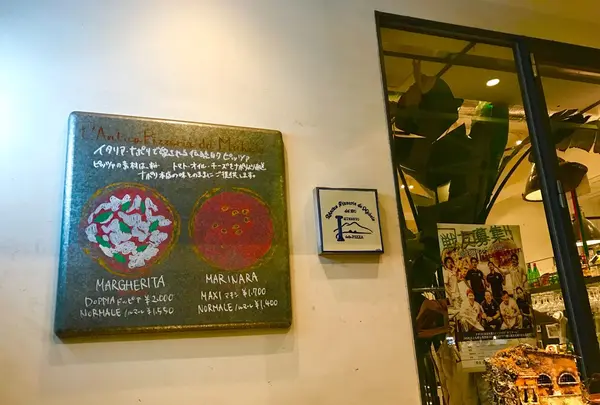 L'Antica Pizzeria da Michele
イタリア・ナポリで愛される伝統のピッツァ
ピッツァの素材は、粉 トマト・オイル・チーズ
ナポリ本店の味そのままにご提供します。
MARGHERITA
DOPPIA ドッピア ¥2,000
NORMALE ノルマーレ ¥1,550
MARINARA
MAXI マキシ ¥1,700
NORMALE ノルマーレ ¥1,400
Antica Pizzeria da Michele
dal 1870
della PIZZA
友募集!!